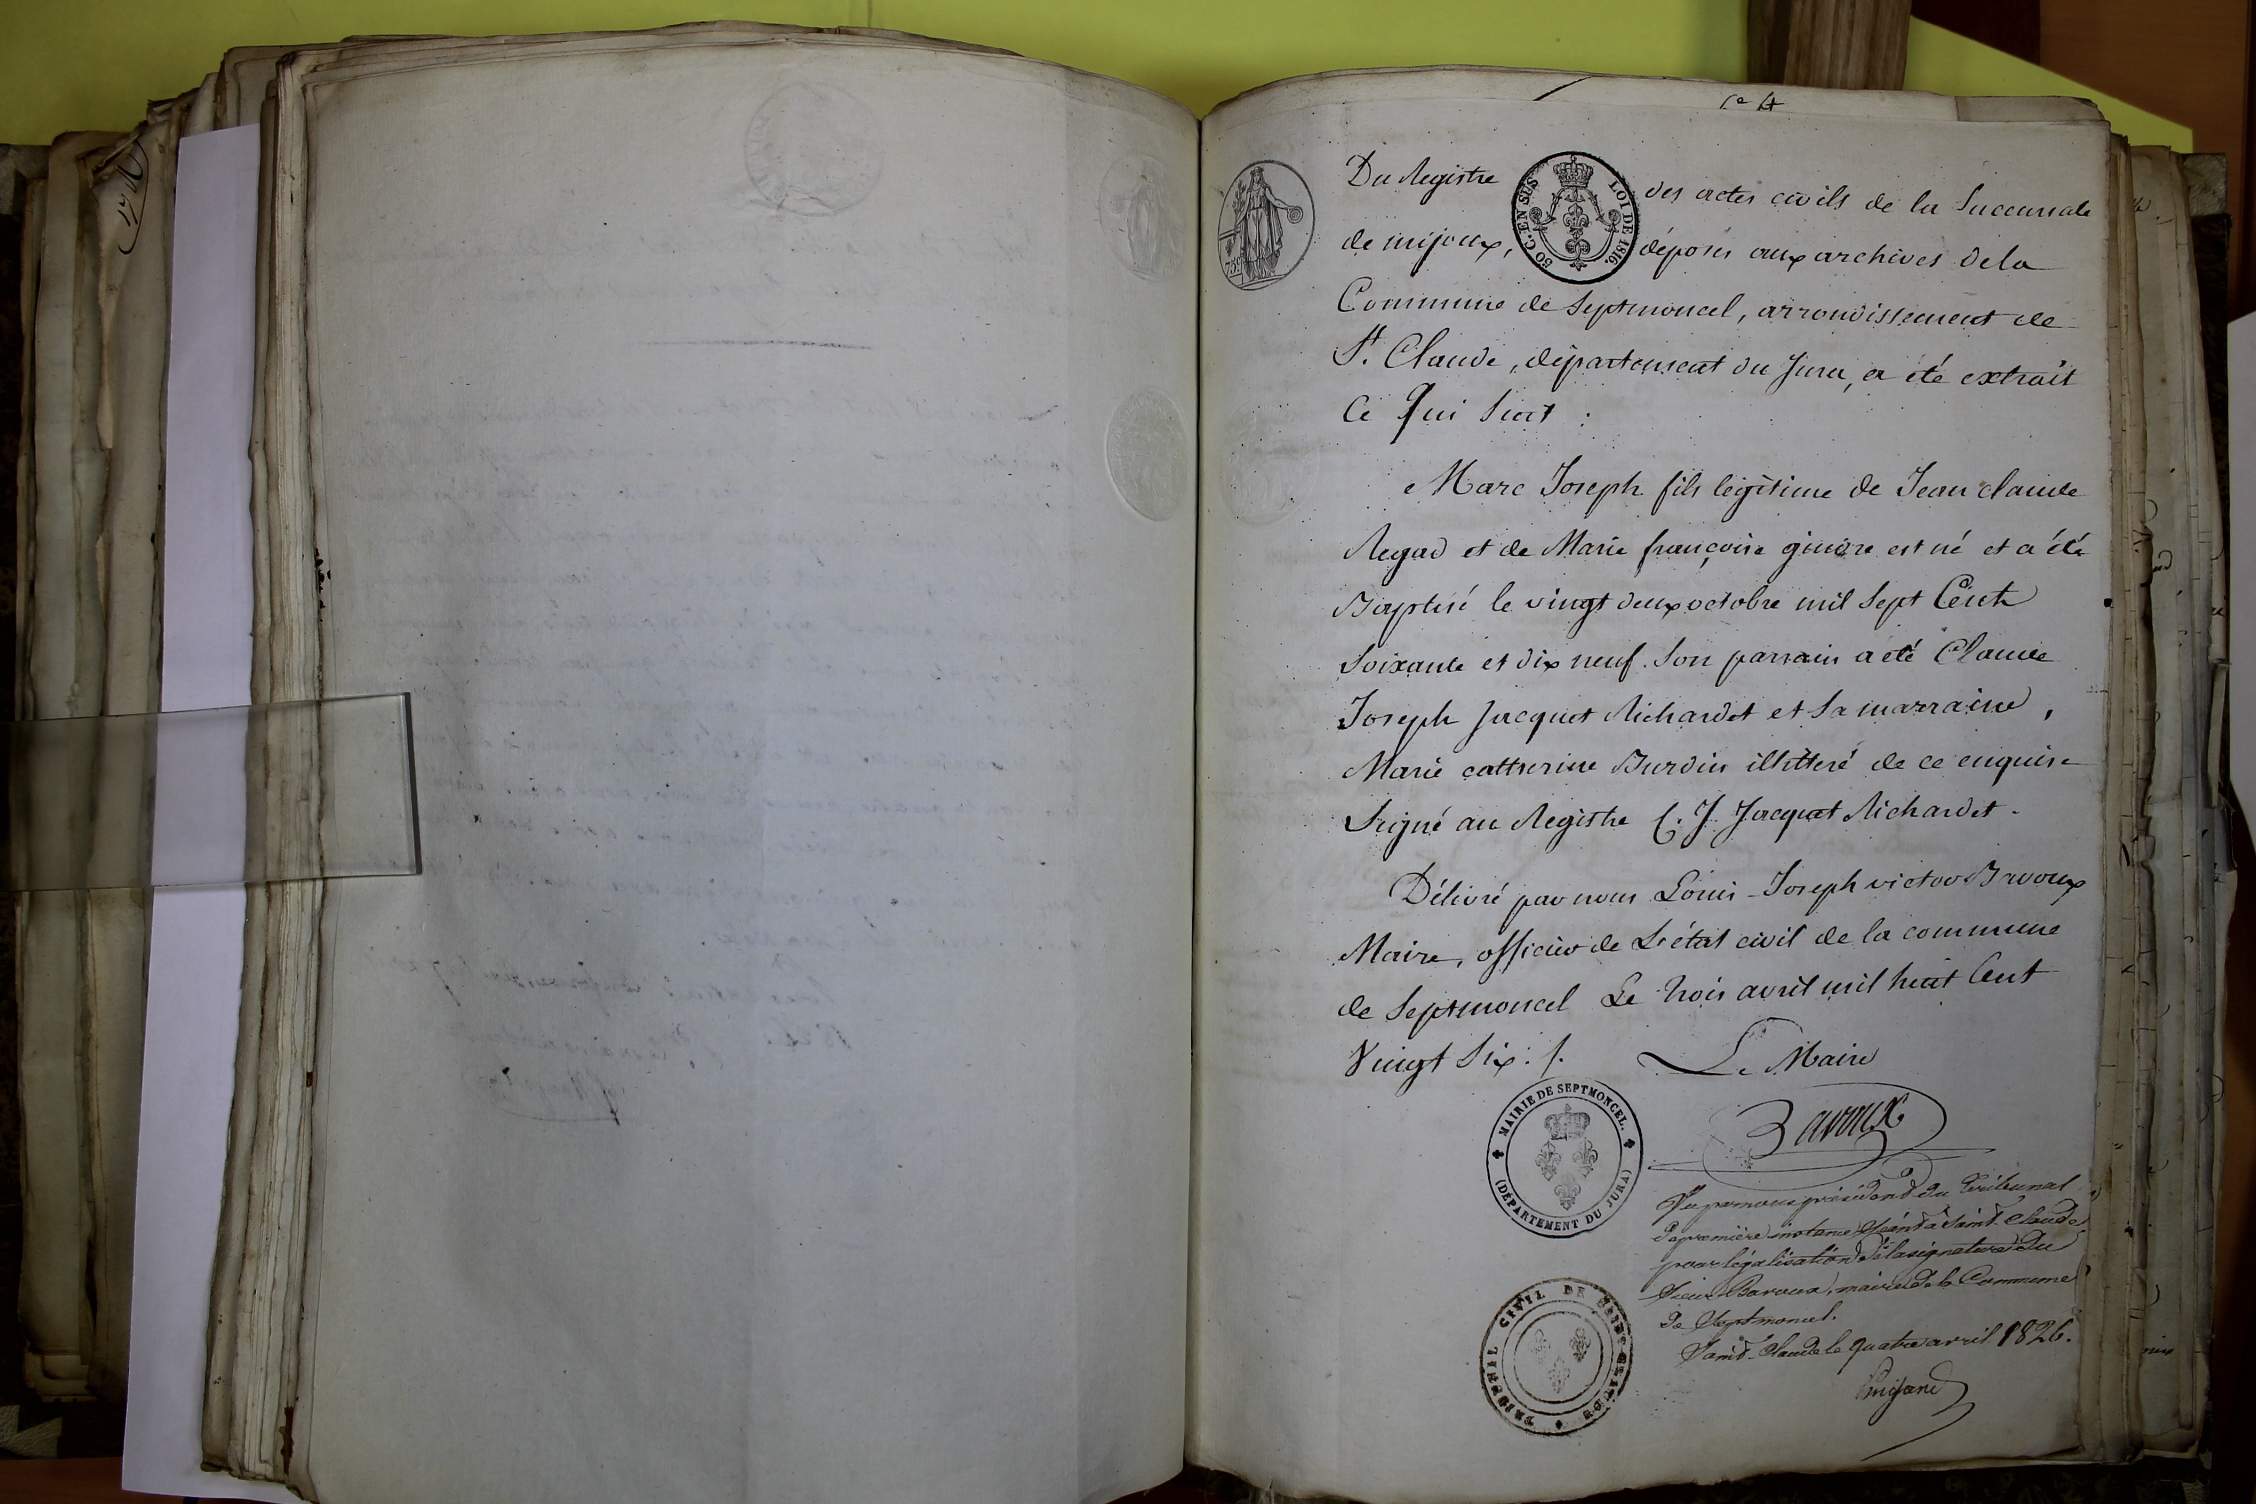 Du Registre des actes civils de la Succursale
de mijoux, déposés aux archives de la
Commune de Septmoncel, arrondissement de
St. Claude, département du Jura, a été extrait
Ce Qui Suit :
Marc Joseph fils légitime de Jean claude
Regad et de Marie françoise ginòre est né et a été
Baptisé le vingt deux octobre mil Sept Cent
Soixante et dix neuf. Son parrain a été Claude
Joseph Jacquet Richardet et Sa marraine,
Marie catherine Burdin illitteré de ce enquise
Signé au Registre C. J. Jacquet Richardet.
Délivré par nous Louis-Joseph victor
Maire, officier de L'état civil de la commune
de Septmoncel Le trois avril mil huit Cent
Vingt Six ./.
Le Maire
Vu par nous président du Tribunal
de première instance Séant à Saint-Claude
pour légalisation de la signature du
Sieur maire de la Commune
de Septmoncel.
Saint-Claude le quatre avril 1826.
50 C. EN SUS
LOI DE 1816.
MAIRIE DE SEPTMONCEL.
(DÉPARTEMENT DU JURA)
TRIBUNAL CIVIL DE SAINT-CLAUDE